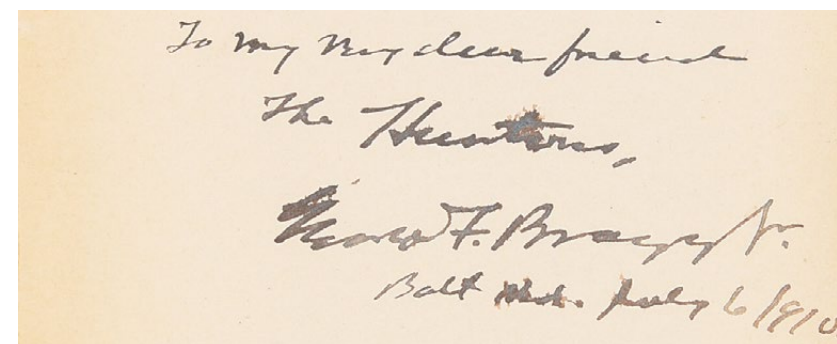 To my very dear friend
The Huntons,
George F. Bragg Jr.
Balt Md. July 6/910